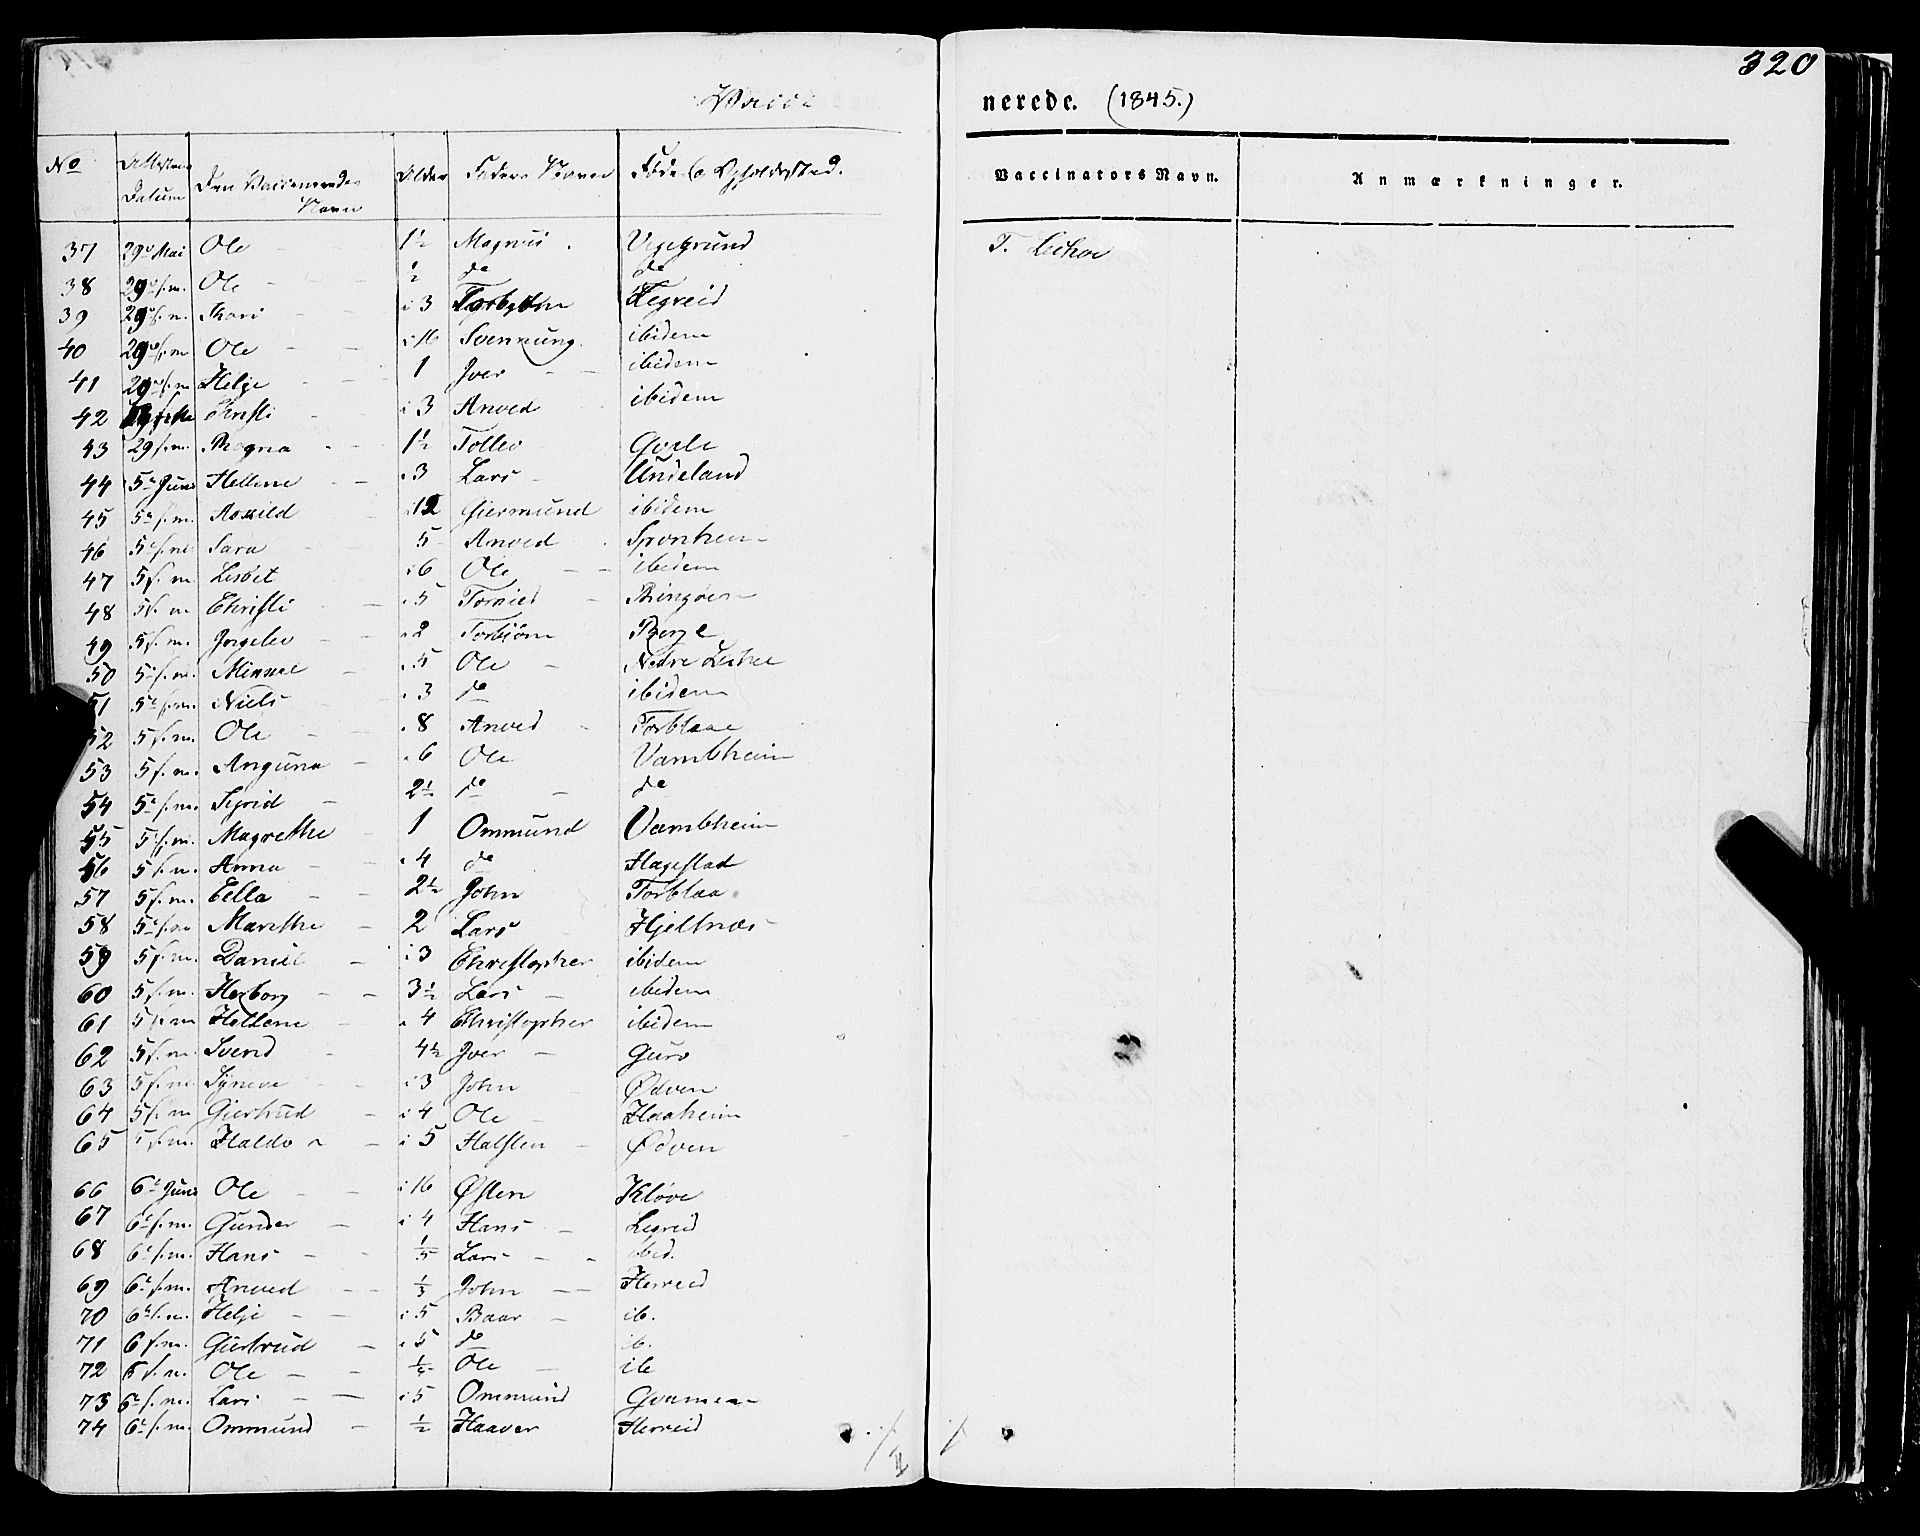 320
nerede. (1845.)
No Datum Den Navn Alder Faders Navn Føde & Opholdssted.
Vaccinators Navn. Anmærkninger.
37 29 Mai Ole 1½ Magnus T. Leikov
38 29 s.m. Ole ½ do do
39 29 s.m. Mari 3 Torbiørn
40 29 s.m. Ole 16 Svennung ibidem
41 29 s.m. Helje 1 Iver ibidem
42 Christi 3 Anved ibidem
43 29 s.m. Magna 1½ Tollev Qvale
44 5 Juni Hellene 3 Lars Undeland
45 5 s.m. 12 Giermund ibidem
46 5 s.m. Sara 5 Anved Sponheim
47 5 s.m. Lisbet 6 Ole ibidem
48 5 s.m. Christi 5 Bingøen
49 5 s.m. Ingelev 2 Torbiørn Berge
50 5 s.m. Mikkel 5 Ole Nedre
51 5 s.m. Niels 3 do ibidem
52 5 s.m. Ole 8 Anved Torblaae
53 5 s.m. Anguna 6 Ole Vambheim
54 5 s.m. Sigrid 2½ do do
55 5 s.m. Magrethe 1 Ommund Vambheim
56 5 s.m. Anna 4 do Hagestad
57 5 s.m. Eella 2½ John Torblaa
58 5 s.m. Marethe 2 Lars Hjeltnæs
59 5 s.m. Daniel 3 Christopher ibidem
60 5 s.m. Herborg 3½ Lars ibidem
61 5 s.m. Hellene 4 Christopher ibidem
62 5 s.m. Svend 4½ Iver Guro
63 5 s.m. Syneve 3 John Ødven
64 5 s.m. Giertrud 4 Ole Haaheim
65 5 s.m. Haldor 5 Halsten Ødven
66 6 Juni Ole 16 Østen Kløve
67 6 s.m. Gunder 4 Hans Legreid
68 6 s.m. Hans 1/5 Lars ibid.
69 6 s.m. Anved 1/3 John Herreid
70 6 s.m. Helje 5 Baar ib.
71 6 s.m. Giertrud 5 do ib.
72 6 s.m. Ole Ole ib
73 6 s.m. Lars 5 Ommund Qvamen
74 6 s.m. Ommund ½ Haaver Herreid